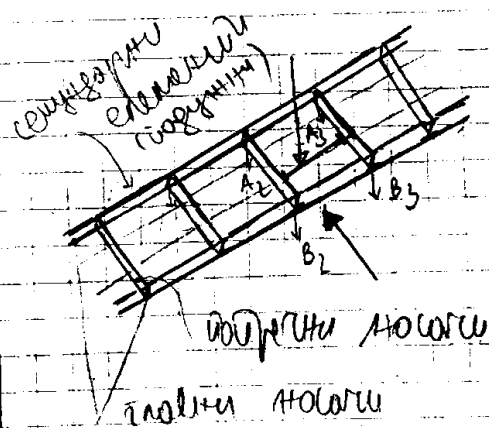 секундарни
елементи
(подужни)
A₂
A₃
B₂
B₃
попречни носачи
главни носачи